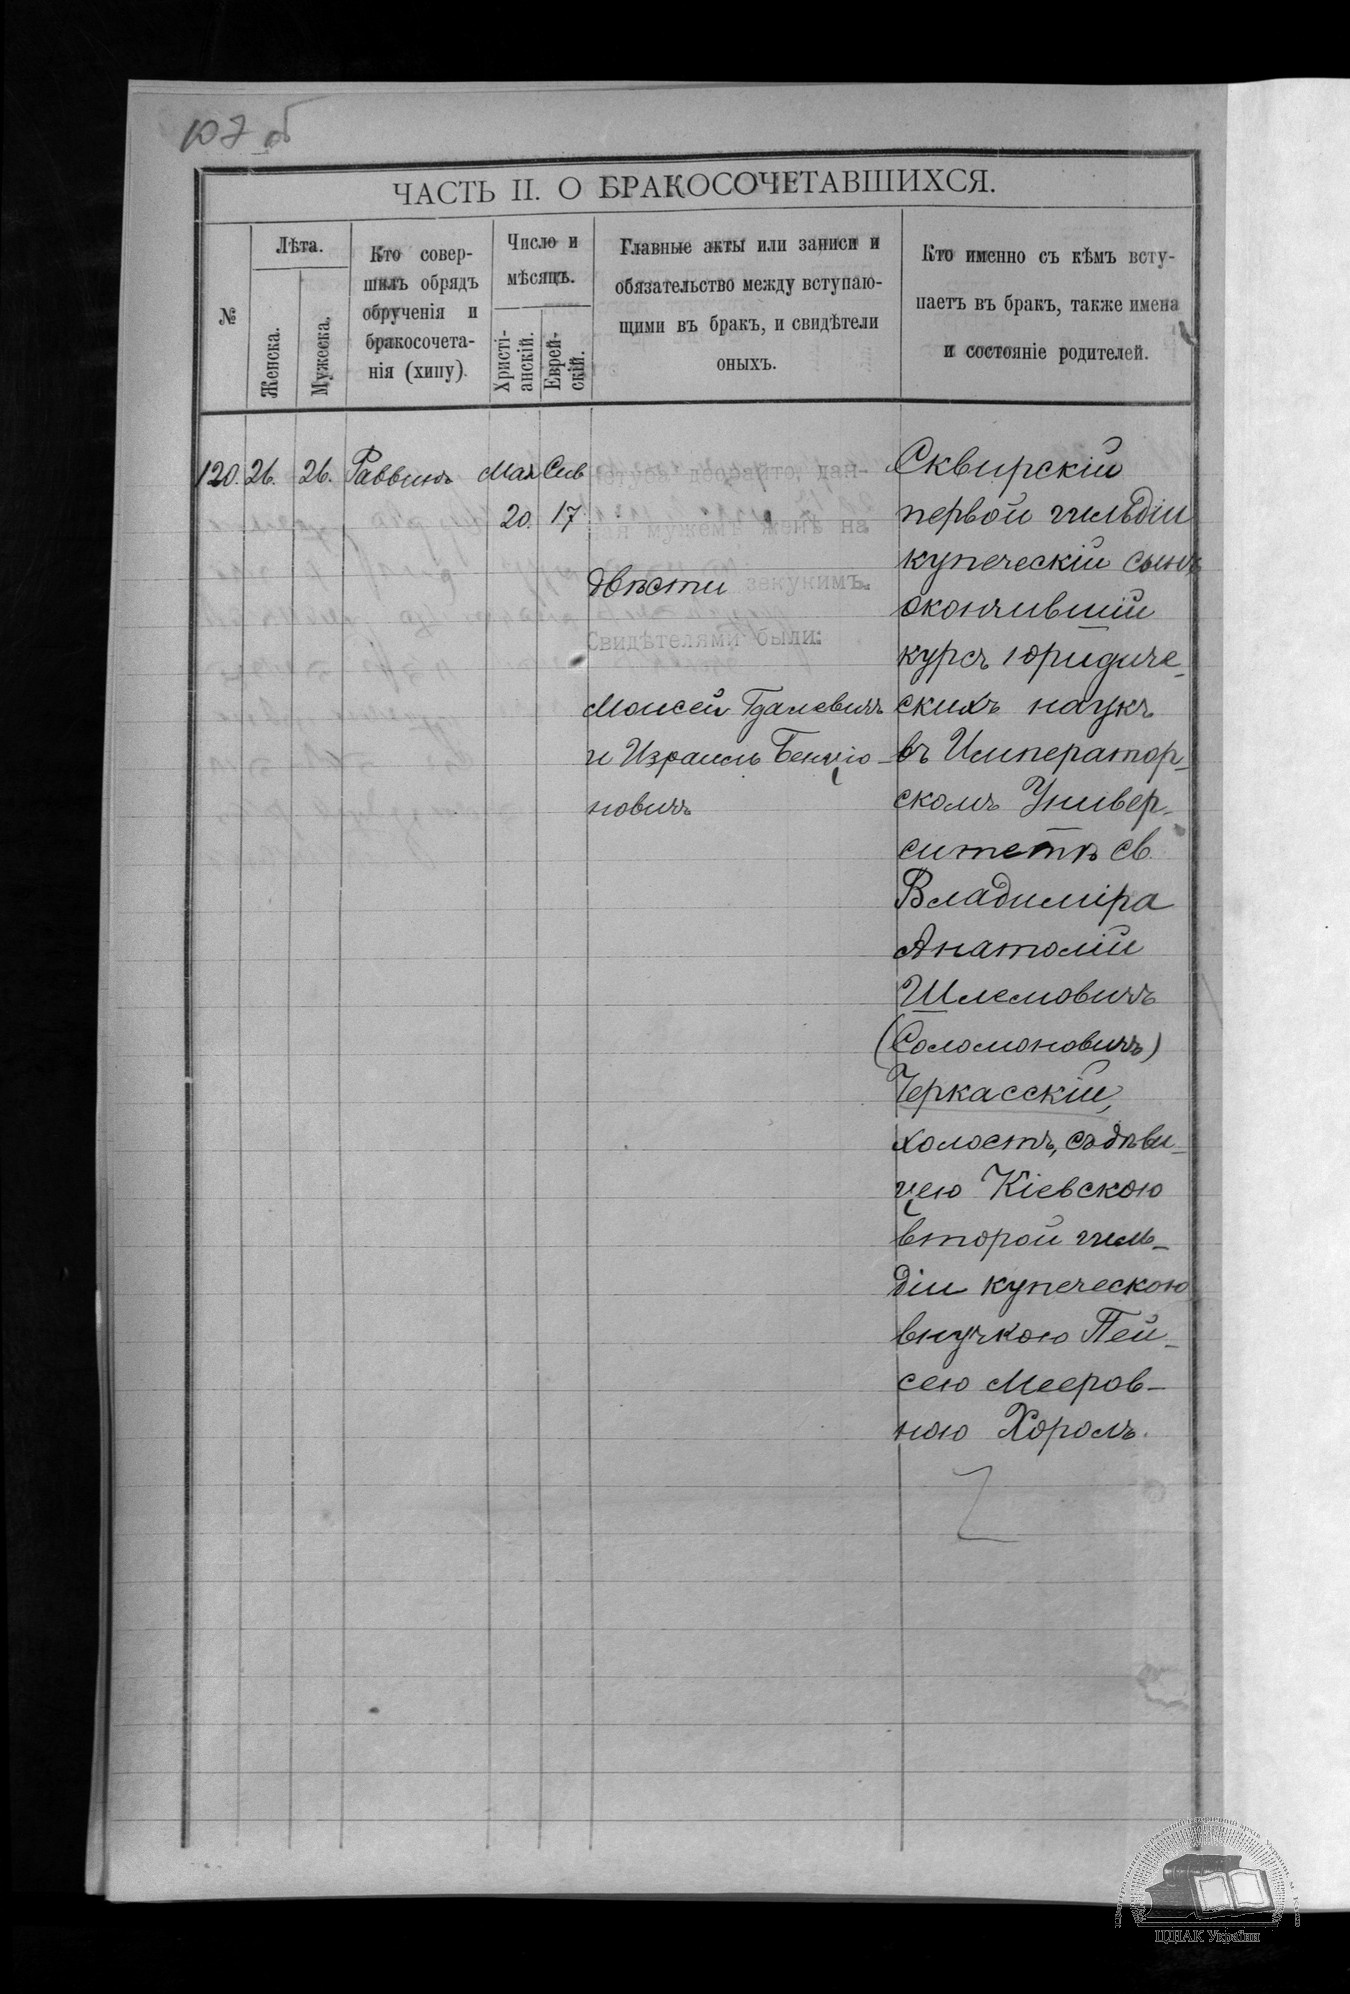 107 об
ЧАСТЬ II. О БРАКОСОЧЕТАВШИХСЯ.
№
Лѣта.
Женска.
Мужеска.
Кто совер-
шилъ обрядъ
обрученія и
бракосочета-
нія (хипу).
Число и
мѣсяцъ.
Христі-
анскій.
Еврей-
скій.
Главные акты или записи и
обязательство между вступаю-
щими въ бракъ, и свидѣтели
оныхъ.
Кто именно съ кѣмъ всту-
паетъ въ бракъ, также имена
и состояніе родителей.
120. 26. 26. Раввинъ Мая Сив
20. 17
кетуба деорайто, дан-
ная мужемъ женѣ на
двѣсти зекукимъ.
Свидѣтелями были:
Моисей Гдалевичъ
и Израиль Бенціо-
новичъ
Сквирскій
первой гильдіи
купеческій сынъ
окончившій
курсъ юридиче-
скихъ наукъ
въ Император-
скомъ Универ-
ситетѣ св.
Владиміра
Анатолій
Шлемовичъ
(Соломоновичъ)
Черкасскій,
холостъ, съ дѣви-
цею Кіевскою
второй гиль-
діи купеческою
внучкою Пей-
сею Мееров-
ною Хоромъ.
ЦДІАК України